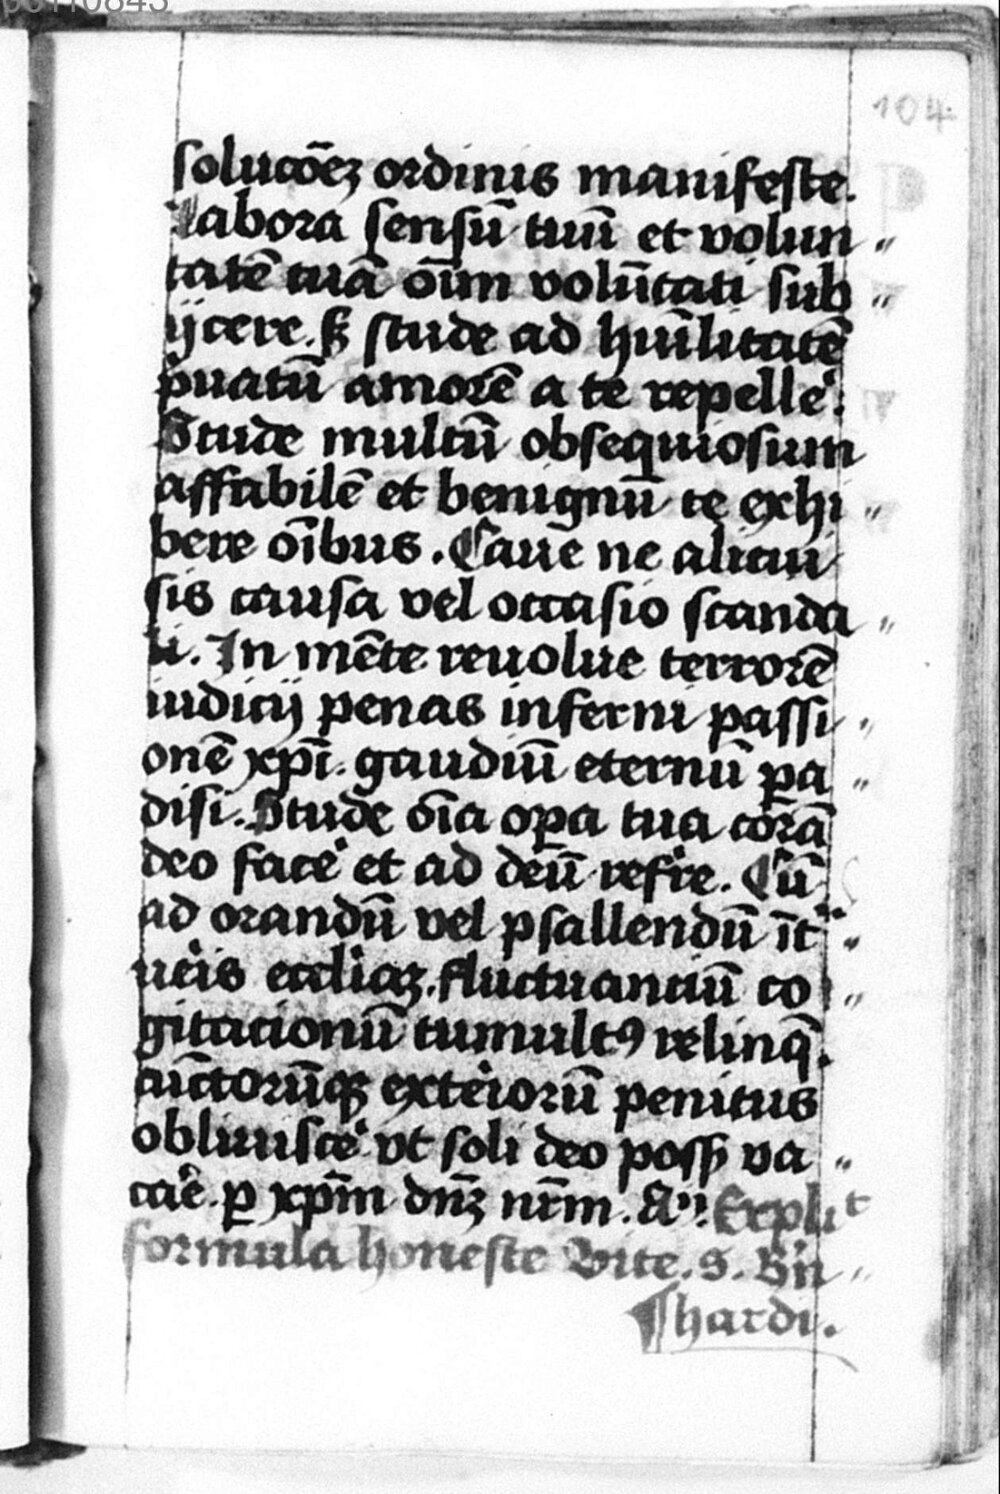 104
solucōeꝫ ordinis manifeste.
Labora sensū tuū et volun〃
tatē tuā oīm volūtati sub〃
ijcere. Sꝫ stude ad huīlitatē
pͥuatū amorē a te repelle᷑.
Stude multū obsequiosum
affabilē et benignū te exhi〃
bere oībus. Caue ne alicui
sis causa vel occasio scanda〃
li. In mēte reuolue terrorē
iudicij penas inferni passi〃
onē xp̄i. gaudiū eternū ꝑa〃
disi. Stude oīa oꝑa tua corā
deo face᷑ et ad deū refr̄e. Cū
ad orandū vel psallendū īt〃
ue᷑is eccliaꝫ. fluctuanciū co〃
gitacionū tumultꝰ relinq̄.
cūctorūqꝫ exte᷑iorū penitus
obliuisce᷑ vt soli deo possꝭ va〃
ca᷑e. ꝑ xp̄m dn̄ꝫ nr̄m. A〃. Explic̄it
formula honeste Vite. S. B᷑n〃
¶hardi.